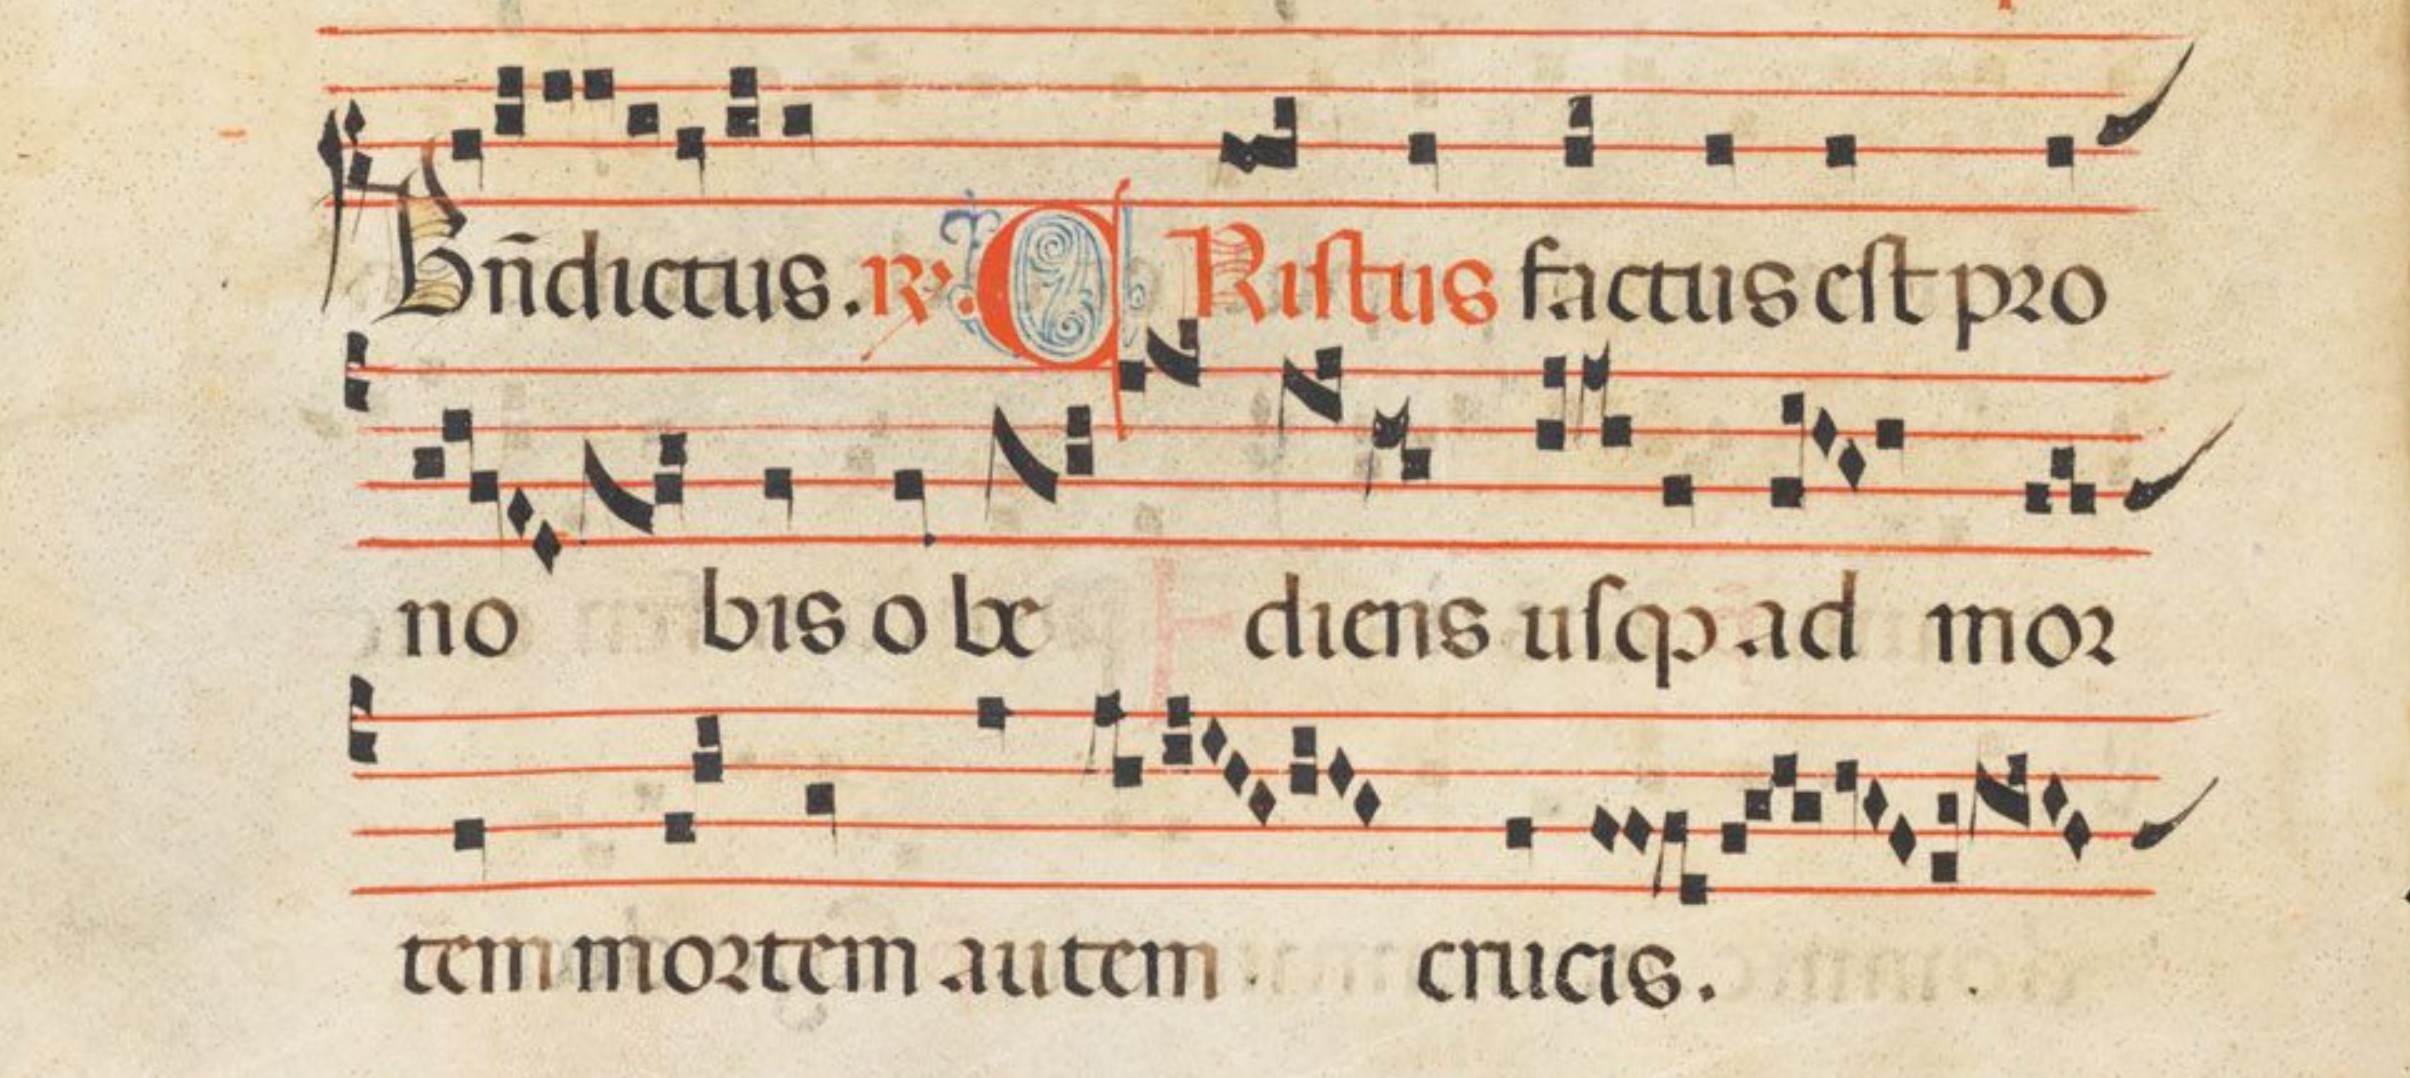 Bn̄dictus. R. CRistus factus est pro
no bis o be diens usqꝫ ad mor
tem mortem autem crucis.